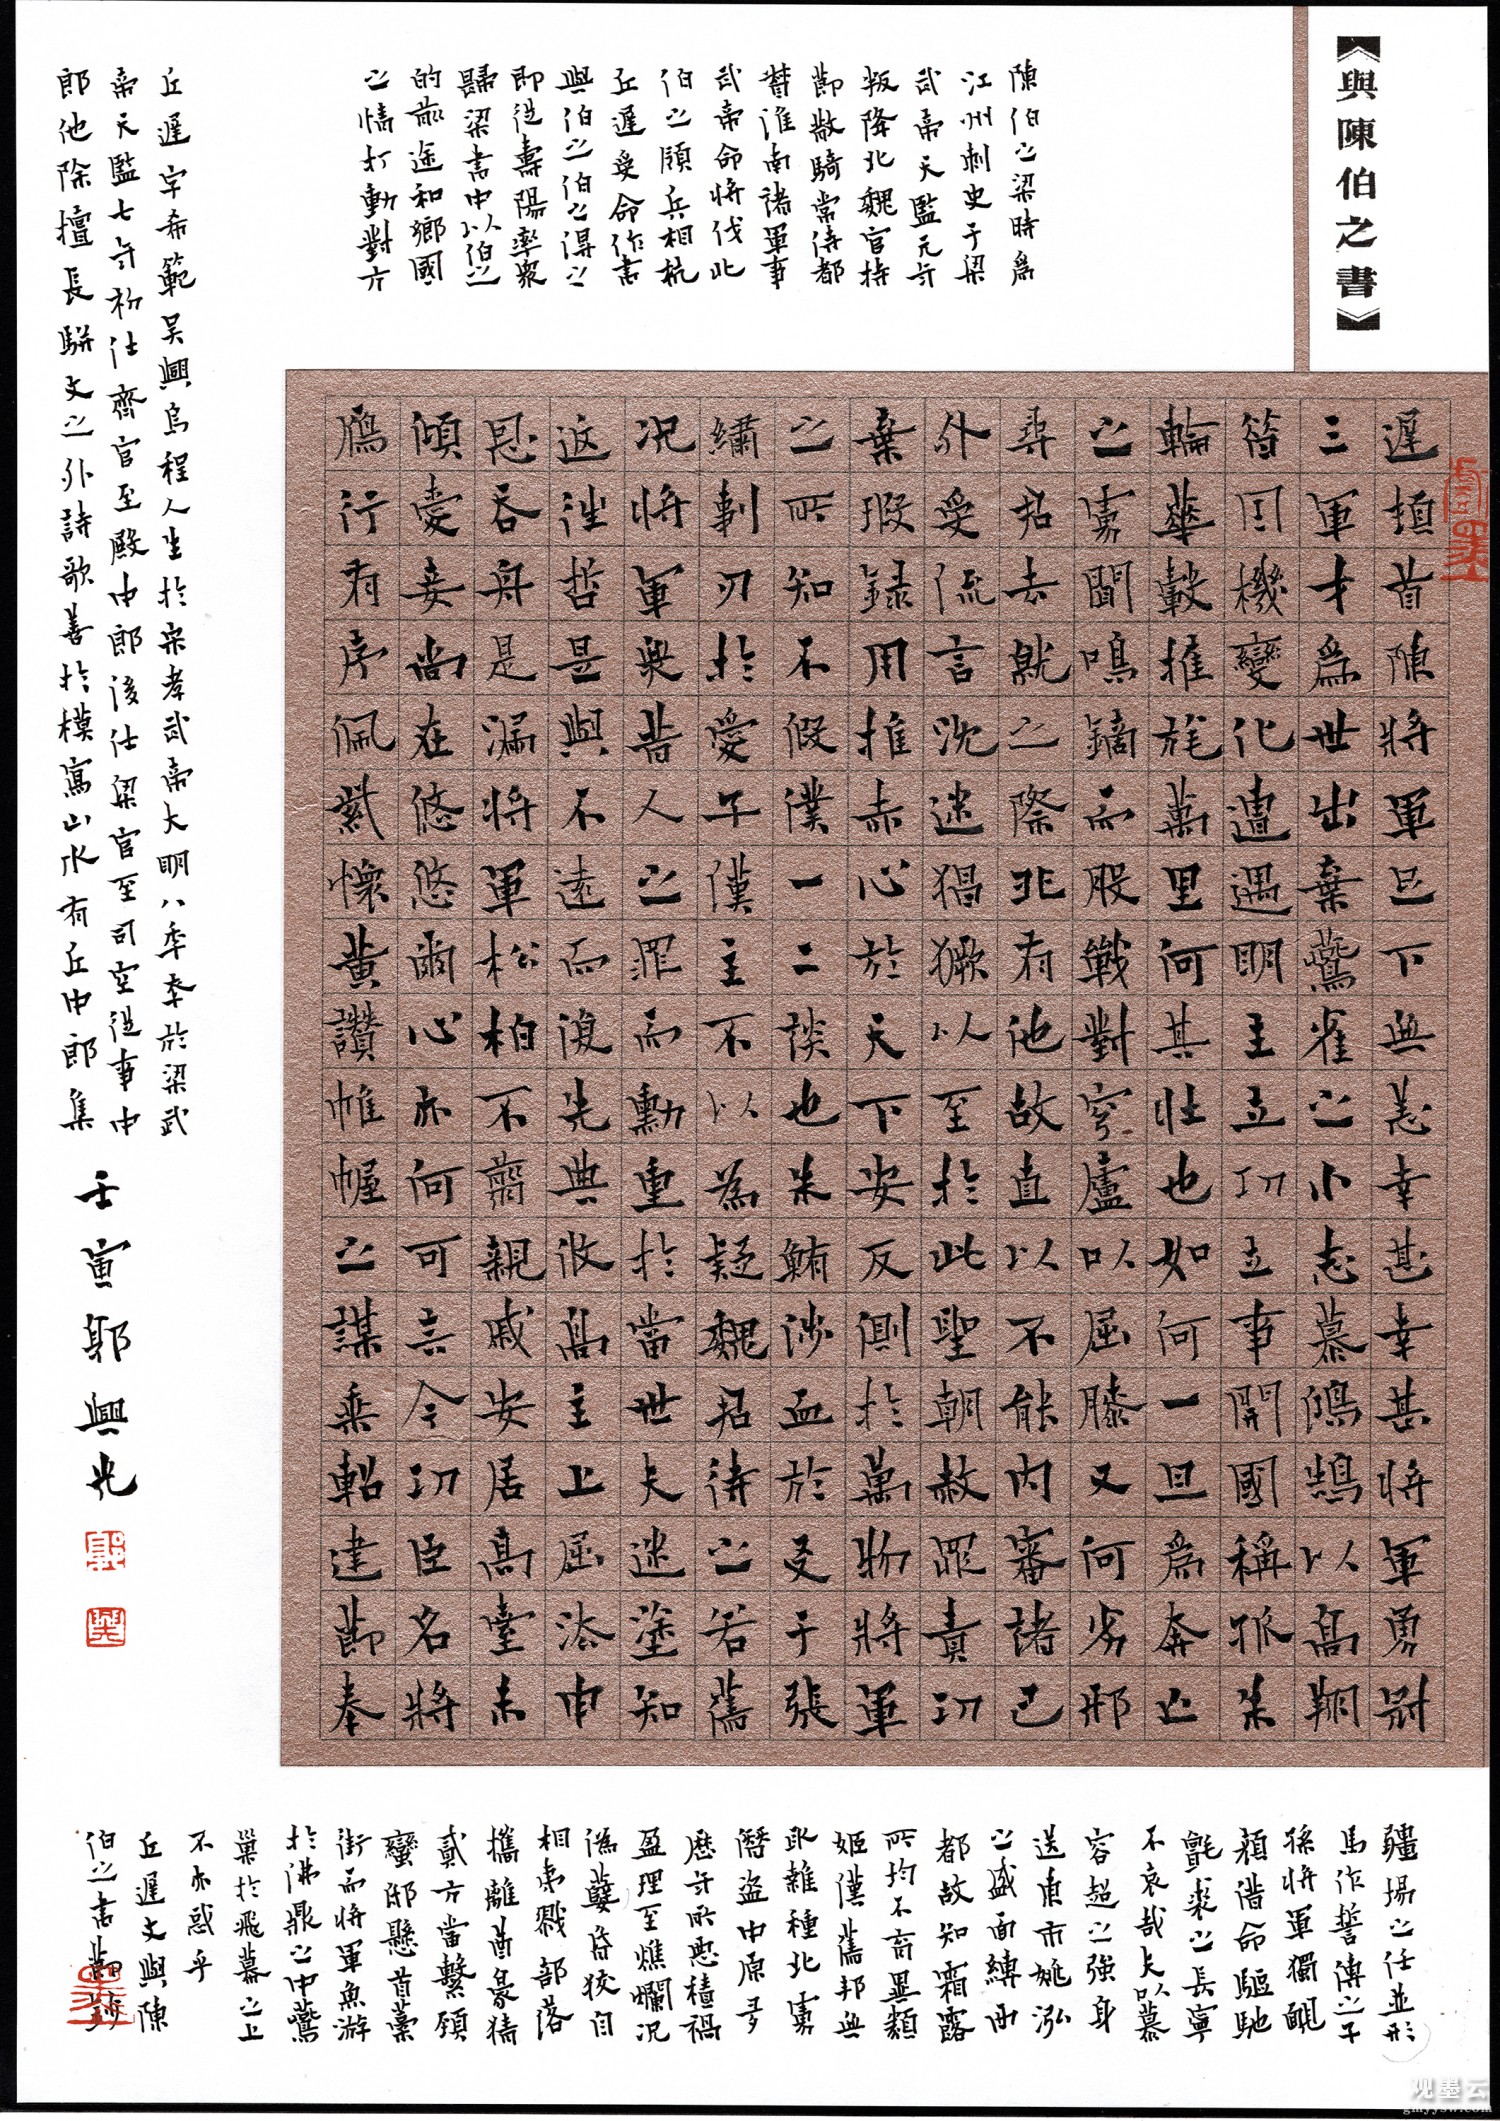 《與陳伯之書》
陳伯之梁時爲
江州刺史于梁
武帝天監元年
叛降北魏官持
節散騎常侍都
督淮南諸軍事
武帝命將伐北
伯之領兵相抗
丘遲受命作書
與伯之伯之得之
即從壽陽率衆
歸梁書中以伯之
的前途和鄉國
之情打動對方
遲頓首陳將軍足下無恙幸甚幸甚將軍勇冠
三軍才爲世出棄燕雀之小志慕鴻鵠以高翔
昔因機變化遭遇明主立功立事開國稱孤朱
輪華轂擁旄萬里何其壯也如何一旦爲奔亡
之虜聞鳴鏑而股戰對穹廬以屈膝又何劣邪
尋君去就之際非有他故直以不能內審諸己
外受流言沈迷猖獗以至於此聖朝赦罪責功
棄瑕錄用推赤心於天下安反側於萬物將軍
之所知不假僕一二談也朱鮪涉血於友于張
繡剚刃於愛子漢主不以為疑魏君待之若舊
況將軍無昔人之罪而勳重於當世夫迷塗知
返往哲是與不遠而復先典攸高主上屈法申
恩吞舟是漏將軍松柏不翦親戚安居高臺未
傾愛妾尚在悠悠爾心亦何可言今功臣名將
鴈行有序佩紫懷黃讚帷幄之謀乘軺建節奉
疆埸之任並刑
馬作誓傳之子
孫將軍獨靦
顏借命驅馳
氈裘之長寧
不哀哉夫以慕
容超之強身
送東市姚泓
之盛面縛西
都故知霜露
所均不育異類
姬漢舊邦無
取雜種北虜
僭盜中原多
歷年所惡積禍
盈理至燋爛況
偽孽昏狡自
相夷戮部落
攜離酋豪猜
貳方當繫頸
蠻邸懸首藁
街而將軍魚游
於沸鼎之中燕
巢於飛幕之上
不亦惑乎
丘遲文與陳
伯之書節鈔
丘遲字希範吳興烏程人生於宋孝武帝大明八年卒於梁武
帝天監七年初仕齊官至殿中郎後仕梁官至司空從事中
郎他除擅長駢文之外詩歌善於模寫山水有丘中郎集
壬寅郭興光
观墨云
gmyysw.com